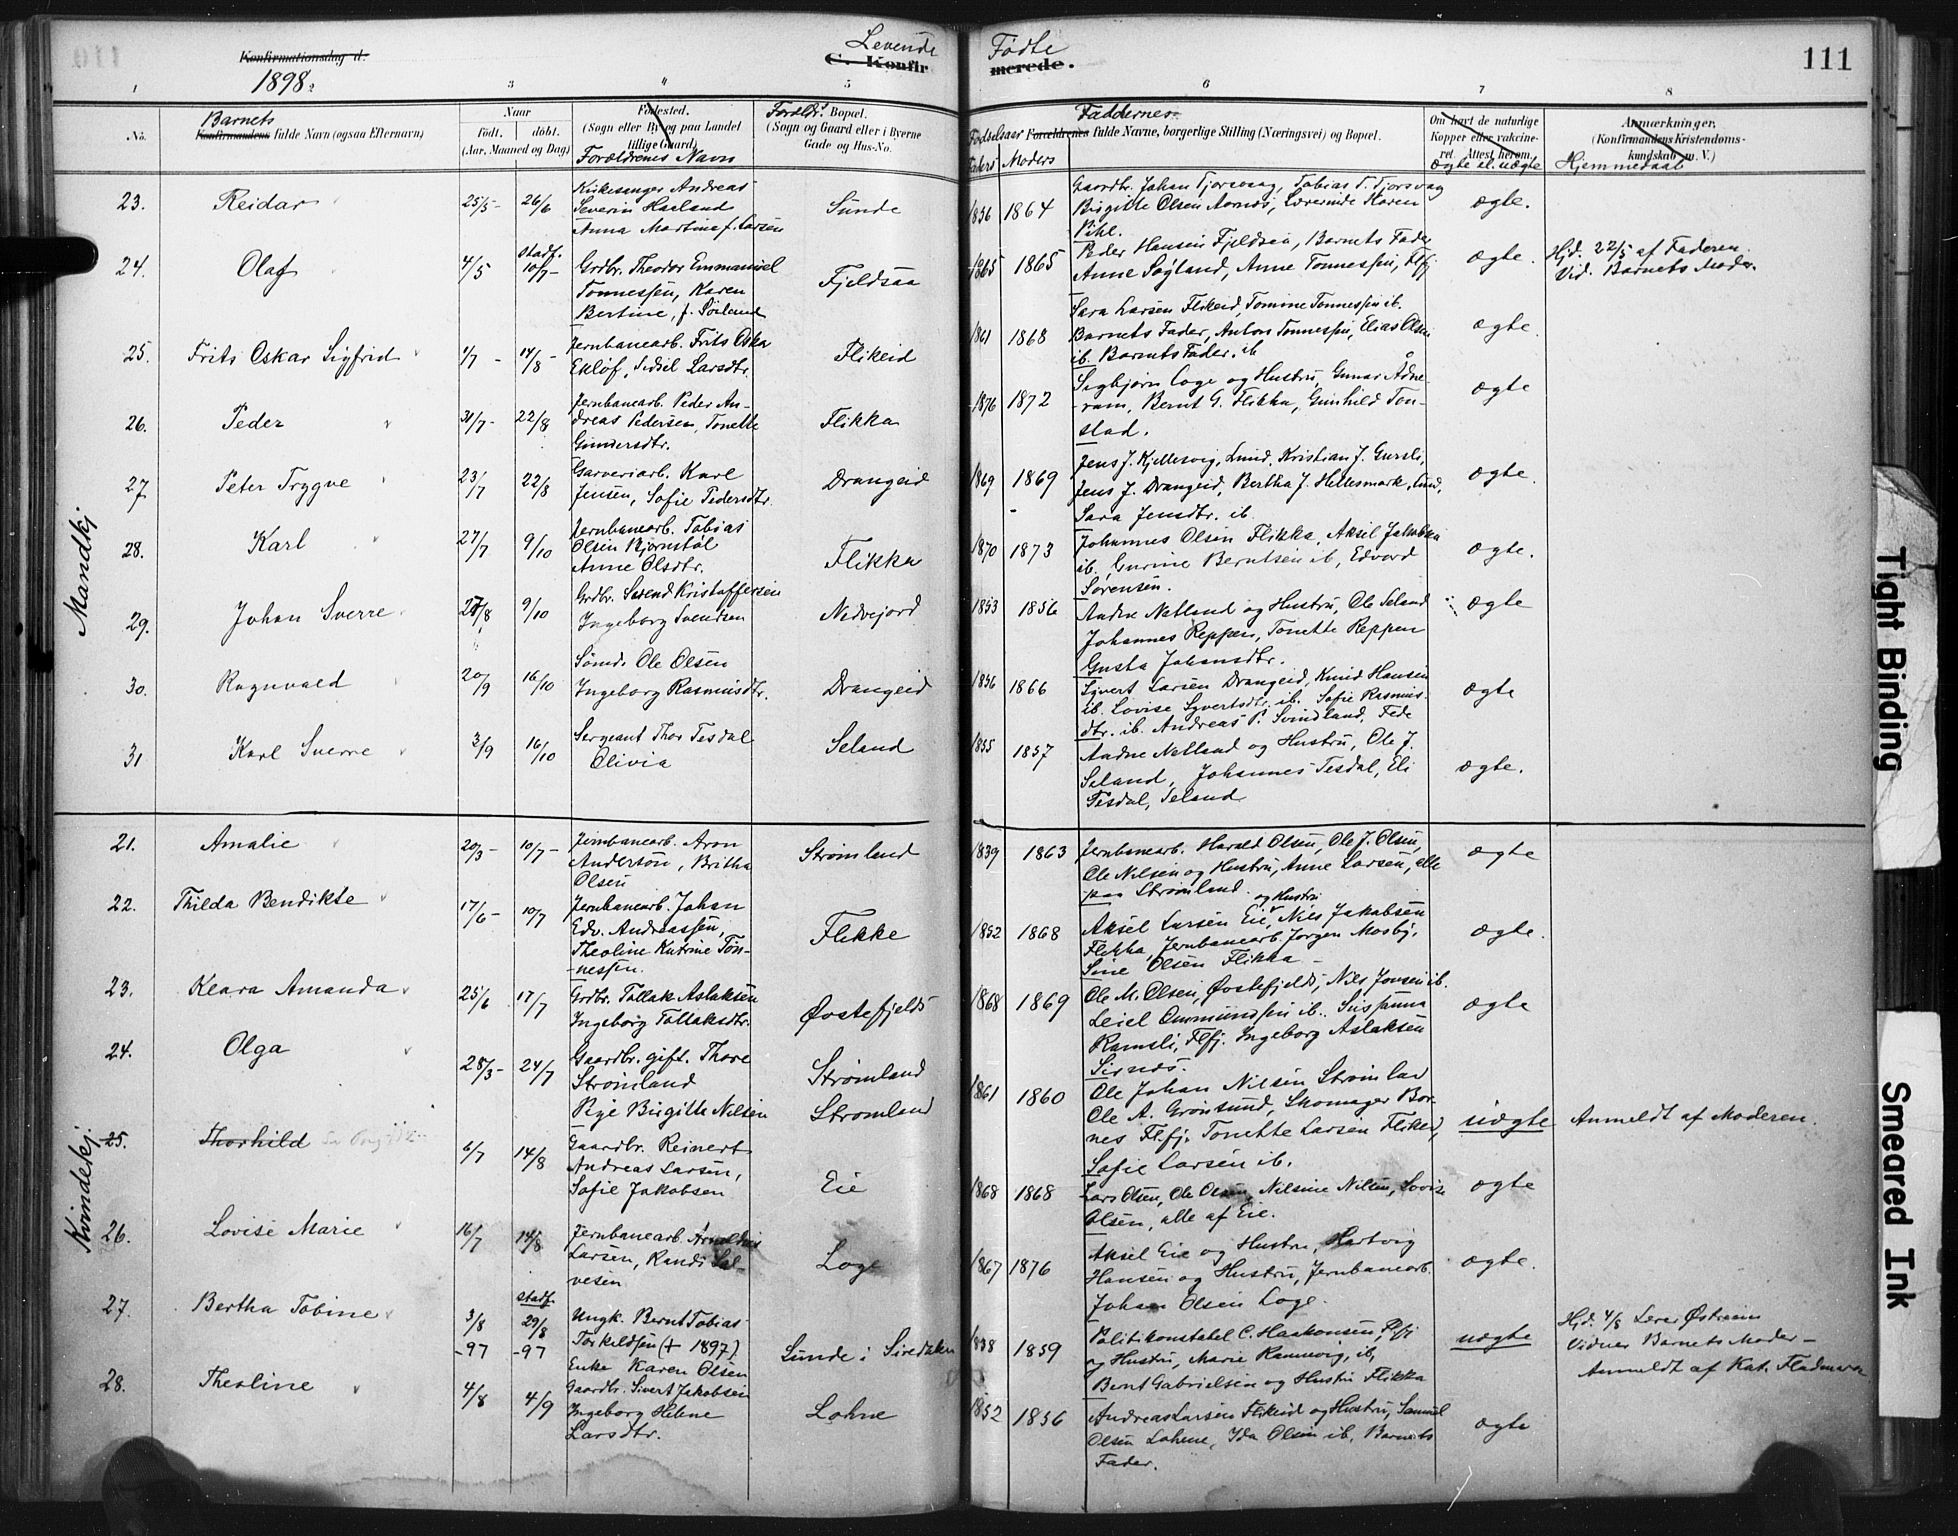 Konfirmationsdag d.
1898
Levende
C. Konfir
Fødte
merede.
111
1
3
4
5
6
7
8
No.
Barnets
Konfirmandens fulde Navn (ogsaa Efternavn)
Naar
født. døbt.
(Aar, Maaned og Dag)
Fødested.
(Sogn eller By og paa Landet
tillige Gaard)
Forældrenes Navn
Forældr. Bopæl.
(Sogn og Gaard eller i Byerne
Gade og Hus-No.
Fødselsaar
Faders Moders
Faddernes
Forældrenes fulde Navne, borgerlige Stilling (Næringsvei) og Bopæl.
Om havt de naturlige
Kopper eller vakcine-
ret. Attest herom.
ægte el. uægte
Anmærkninger,
(Konfirmandens Kristendoms-
kundskab m. V.)
Hjemmedaab
Mandkj
23. Reidar 25/5 - 26/6
Kirkesanger Andreas
Severin Haaland
Anna Martine f. Larsen
Sunde
1836 1864
Gaardbr. Johan Tjorsvaag, Tobias T. Tjorsvag
Birgitte Olsen Aarnes, Lærerinde Karen
Pihl.
ægte.
24. Olaf 4/5 stadf. 10/7 -
Grdbr. Theodor Emmanuel
Tønnessen, Karen
Bertine, f. Sørland
Fjeldsaa
1865 1865
Peder Hansen Fjeldsaa, Barnets Fader
Anne Søyland, Anne Tonnessen, Flfj.
ægte.
Hjd. 22/5 af Faderen
Vid. Barnets Moder.
25. Frits Oskar Sigfrid 1/7 - 14/8 -
Jernbanearb. Frits Oska
Eklöf, Sidsel Larsdtr.
Flikeid
1861 1868
Sara Larsen Flikeid, Tomine Tonnessen ib.
Barnets Fader, Anton Tonnessen, Elias Olsen
ib. Barnets Fader. ib
ægte.
26. Peder 31/7 - 22/8
Jernbanearb. Peder An-
dreas Pedersen, Tonette
Gundersdtr.
Flikka
1876 1872
Sigbjørn Loge og Hustru, Gunar Ådne-
ram, Bernt G. Flikka, Gunhild Ton-
stad.
ægte
27 Peter Trygve 23/7 22/8
Garveriarb. Karl
Jensen, Sofie Pedersdtr.
Drangeid
1869 1869
Jens J. Kjellesvig, Lund, Kristian J. Gursli,
Jens J. Drangeid, Bertha J. Hellesmark, Lund,
Sara Jensdtr. ib
ægte.
28. Karl 27/7 9/10
Jernbanearb. Tobias
Olsen Bjørnstøl
Anne Olsdtr.
Flikka
1870 1873
Johannes Olsen Flikka, Aksel Jakobsen
ib. Gurine Berntsen ib, Edvard
Sørensen.
ægte.
29. Johan Sverre 27/8 9/10
Grdbr. Svend Kristoffersen
Ingeborg Svendsen
Nedrejord
1853 1856
Andne Netland og Hustru, Ole Seland
Johannes Reppen, Tonette Reppen
Gusta Johansdtr.
ægte
30. Ragnvald 20/9 16/10
Sømd. Ole Olsen
Ingeborg Rasmusdtr.
Drangeid
1856 1866
Sivert Larsen Drangeid, Knud Hansen
ib. Lovise Syvertsdtr. ib. Sofie Rasmus-
dtr. ib. Andreas P. Svindland. Fede
ægte
31 Karl Sverre 3/9 16/10
Sergeant Thor Tesdal
Olivia
Seland
1855 1857
Andne Netland og Hustru, Ole J.
Seland, Johannes Tesdal, Eli
Tesdal, Seland
ægte.
Kvindekj.
21. Amalie 20/3 - 10/7 -
Jernbanearb. Aron
Anderson, Britha
Olsen
Strømland
1839 1863
Jernbanearb. Harald Olsen, Ole J. Olsen,
Ole Nilsen og Hustru, Anne Larsen, alle
paa Strømland.
ægte
22. Thilda Bendikte 17/6 - 10/7
Jernbanearb. Johan
Edv. Andreassen,
Theoline Katrine Tøn-
nessen.
Flikke
1852 1868
og Hustru
Aksel Larsen Eie, Nils Jakobsen
Flikka, Jernbanearb. Jørgen Mosby,
Sine Olsen Flikka -
ægte.
23. Klara Amanda 25/6 17/7
Grdbr. Tallak Aslaksen
Ingeborg Tallaksdtr.
Øvstefjelds
1868 1869
Ole M. Olsen, Øvstefjelds, Nils Jonsen ib.
Leiel Omundsen ib. Sussanna
Ramsli, Flfj. Ingeborg Aslaksen
Sirnes.
ægte
24. Olga 28/3 - 24/7
Gaardbr. gift. Thore
Strømland
Pige Birgitte Nilsen
Strømland
Strømland
1861 1860
Ole Johan Nilsen Strømland
Ole A. Grønsund, Skomager Bor-
nes Flfj. Tonette Larsen Flikeid,
Sofie Larsen ib.
uægte
Anmeldt af Moderen.
25. Thorhild 6/7 14/8
Gaardbr. Reinert
Andreas Larsen,
Sofie Jakobsen
Eie
1868 1868
Lars Olsen, Ole Olsen, Nilsine Nilsen, Lovise
Olsen, alle af Eie.
ægte
26. Lovise Marie 16/7 14/8
Jernbanearb. Arnoldus
Larsen, Randi Sal-
vesen
Loge
1867 1876
Aksel Eie og Hustru, Hartvig
Hansen og Hustru, Jernbanearb.
Johan Olsen Loge.
ægte.
27. Bertha Tobine 3/8 -97 stadf. 29/8 -97
Ungk. Bernt Tobias
Torkeldsen (+ 1897)
Enke Karen Olsen
Sunde i Siredalen
1838 1859
Politikonstabel C. Haakonsen, Flfj
og Hustru, Marie Rannevig, ib,
Bernt Gabrielsen og Hustru Flikka
uægte
Hjd. 4/8 Lærer Østreim
Vidner Barnets Moder -
Anmeldt af Kat. Flademoen
28. Theoline 4/8 4/9
Gaardbr. Sivert Jakobsen
Ingeborg Helene
Larsdtr.
Lohne
1852 1856
Andreas Larsen Flikeid og Hustru, Samuel
Olsen Lohne, Ida Olsen ib, Barnets
Fader.
ægte
Tight Binding
Smeared Ink